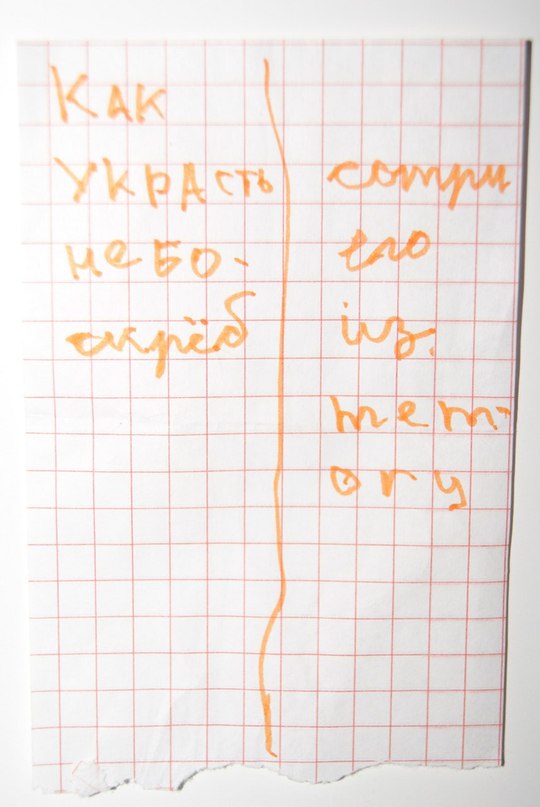 Как
украсть
небо-
скрёб
сотри
его
из
mem-
ory